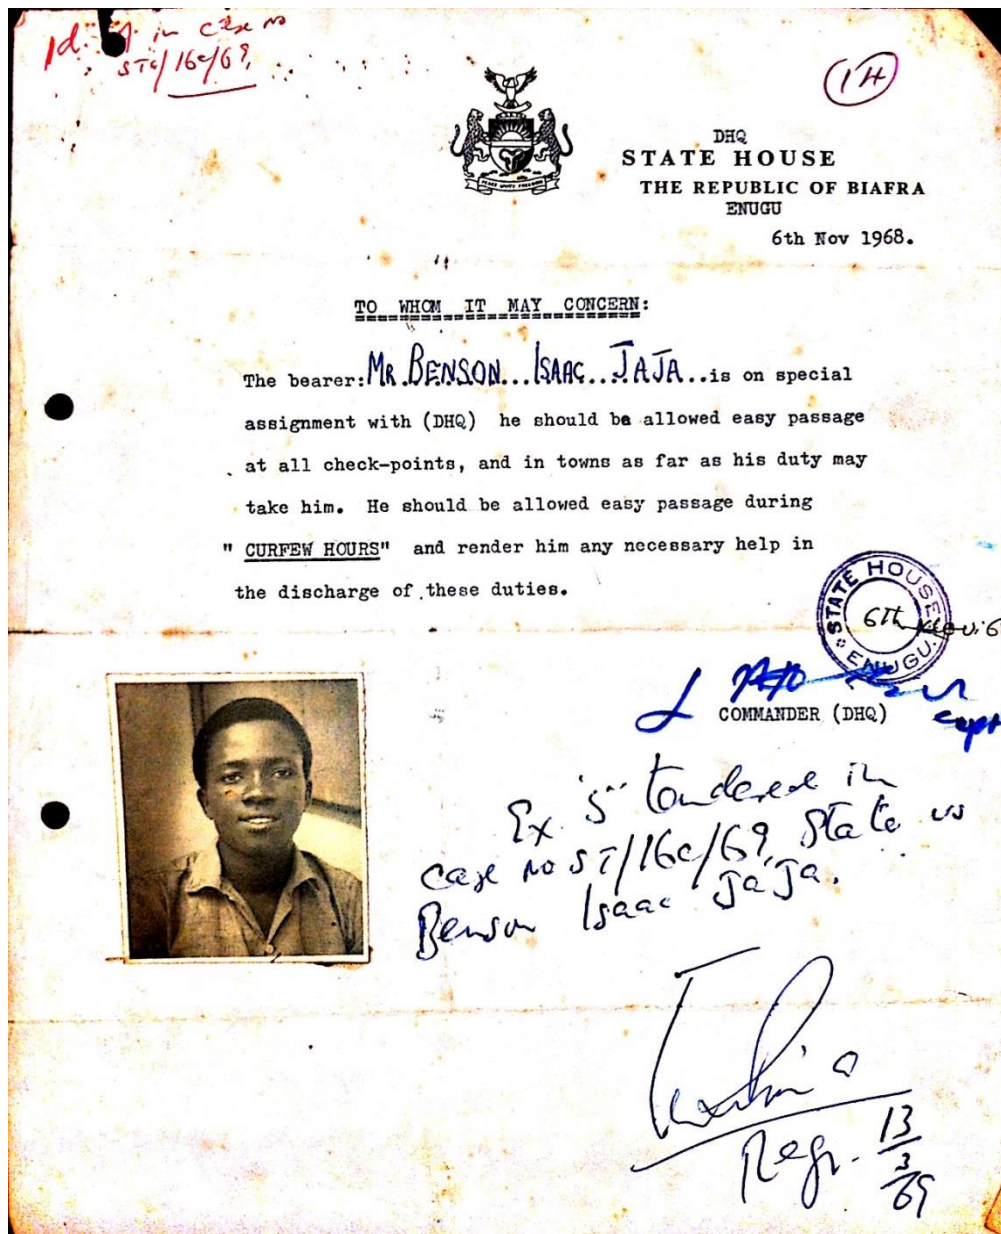 Id. in case no
ST/16c/69
1H
PEACE UNITY FREEDOM
DHQ
STATE HOUSE
THE REPUBLIC OF BIAFRA
ENUGU
6th Nov 1968.
TO WHOM IT MAY CONCERN:
The bearer: MR. BENSON... ISAAC... JAJA...is on special
assignment with (DHQ) he should be allowed easy passage
at all check-points, and in towns as far as his duty may
take him. He should be allowed easy passage during
" CURFEW HOURS" and render him any necessary help in
the discharge of these duties.
STATE HOUSE
6th
ENUGU.
COMMANDER (DHQ)
Capt
Ex "5" tendered in
case no ST/16c/69, State vs
Benson Isaac JaJa.
Regr. 13/3/69